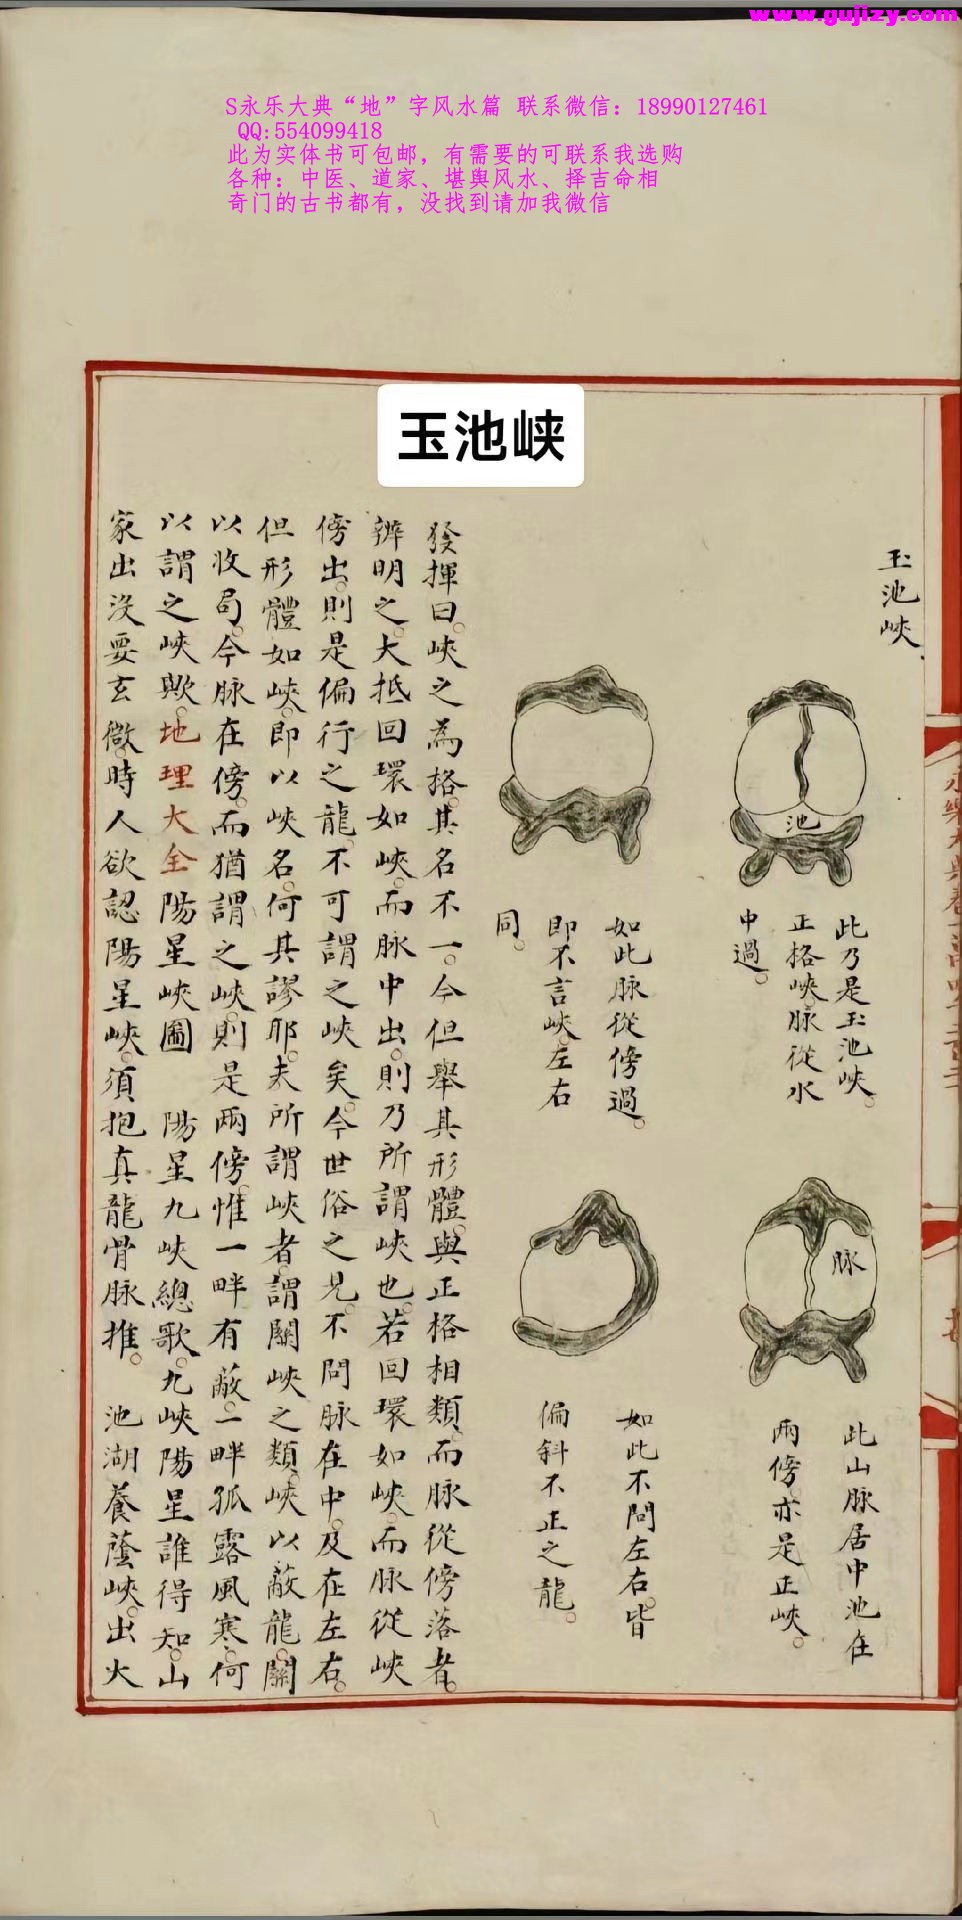 www.gujizy.com
S永乐大典“地”字风水篇 联系微信：18990127461
QQ:554099418
此为实体书可包邮，有需要的可联系我选购
各种：中医、道家、堪舆风水、择吉命相
奇门的古书都有，没找到请加我微信
玉池峡
玉池峽
池
此乃是玉池峽。
正格峽。脉從水
中過。
脉
此山脉居中池在
兩傍。亦是正峽。
如此脉從傍過。
即不言峽。左右
同。
如此不問左右。皆
偏斜不正之龍。
發揮曰。峽之為格。其名不一。今但舉其形體。與正格相類。而脉從傍落者。
辨明之。大抵回環如峽。而脉中出。則乃所謂峽也。若回環如峽。而脉從峽
傍出。則是偏行之龍。不可謂之峽矣。今世俗之見。不問脉在中。及在左右。
但形體如峽。即以峽名。何其謬耶。夫所謂峽者。謂關峽之類。峽以蔽龍。關
以收局。今脉在傍。而猶謂之峽。則是兩傍。惟一畔有蔽。一畔孤露風寒。何
以謂之峽歟。地理大全 陽星峽圖 陽星九峽總歌。九峽陽星誰得知。山
家出没要玄微。時人欲認陽星峽。須抱真龍骨脉推。 池湖養蔭峽。出大
永樂大典卷